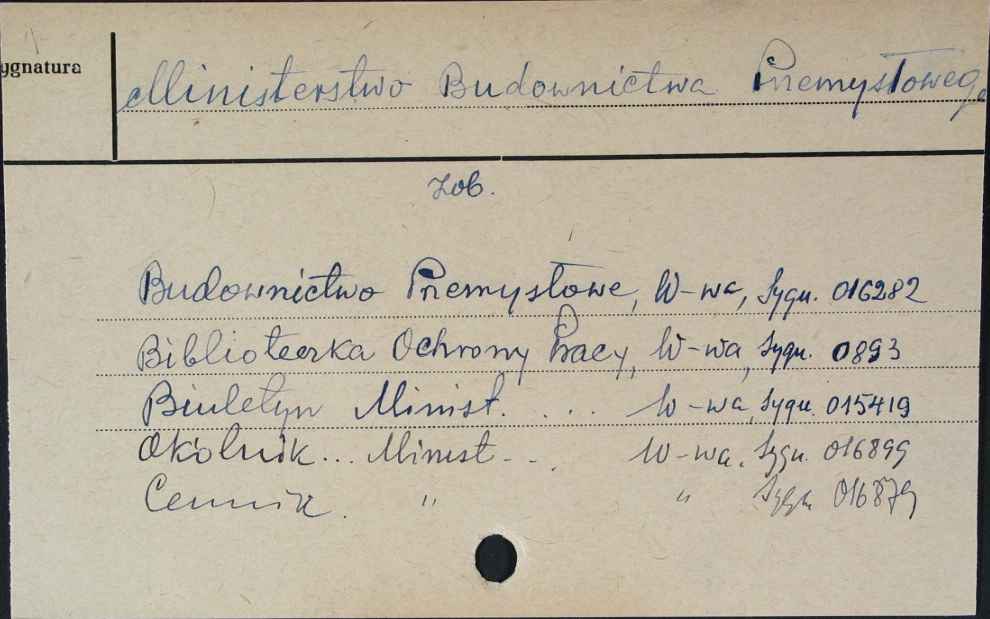 ygnatura
Ministerstwo Budownictwa Przemysłowego
Zob.
Budownictwo Przemysłowe, W-wa, Sygn. 016282
Biblioteczka Ochrony Pracy, W-wa, Sygn. 0893
Biuletyn Minist. . . . W-wa, Sygn. 015419
Okólnik... Minist - . . W-wa, Sygn. 016899
Cennik. " " Sygn 016879